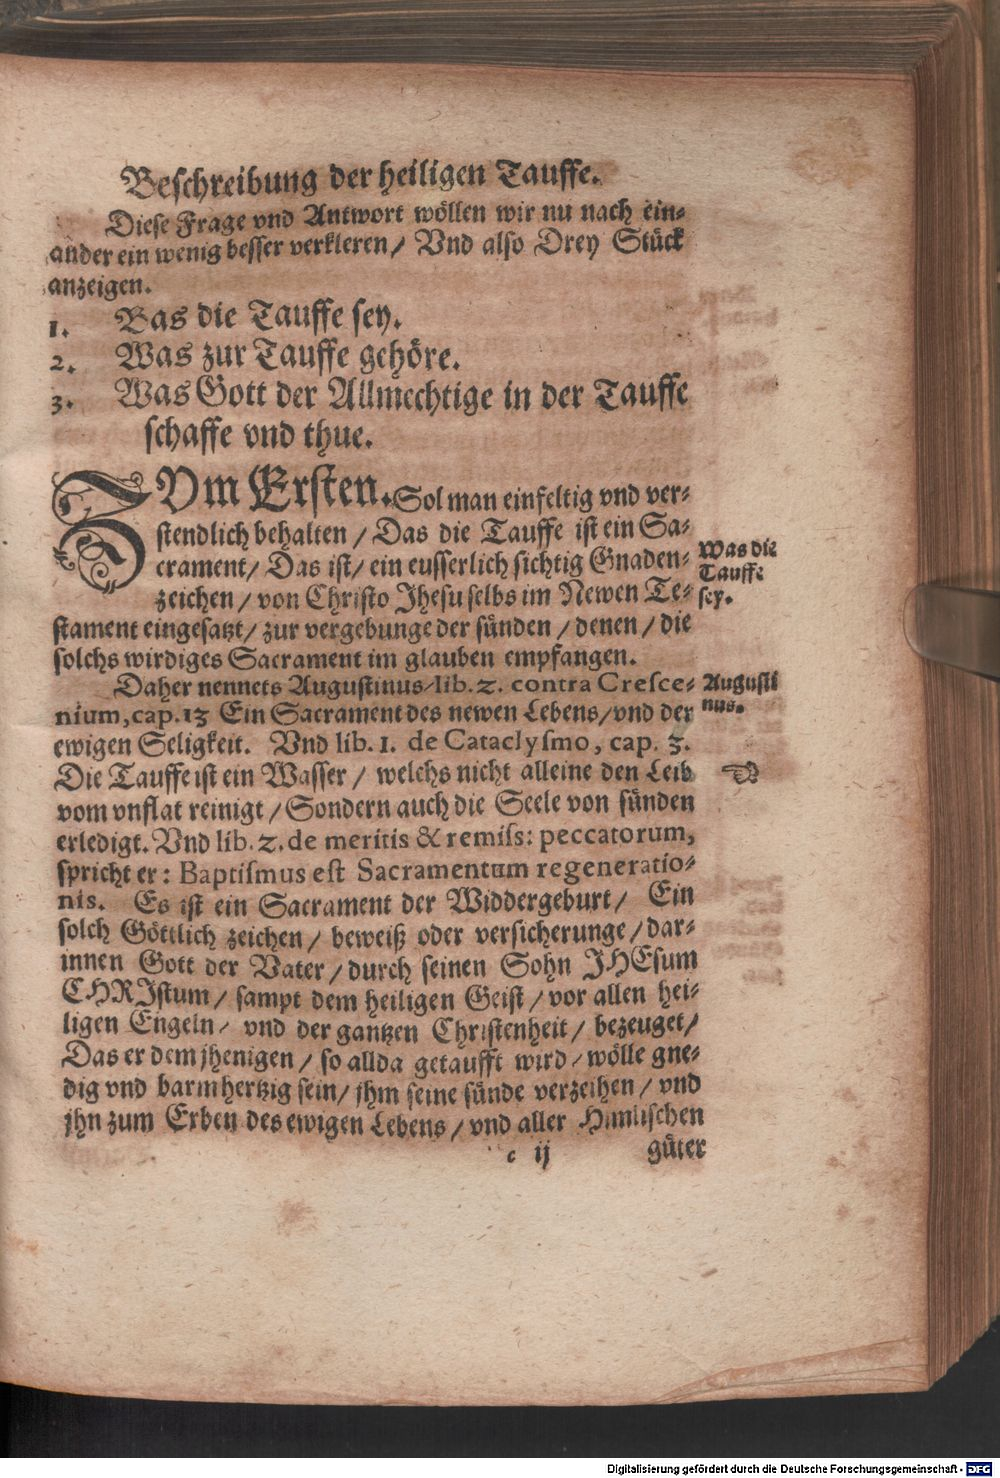 Beschreibung der heiligen Tauffe.
Diese Frage vnd Antwort wöllen wir nu nach ein-
ander ein wenig besser verkleren / Vnd also Drey Stück
anzeigen.
1. Was die Tauffe sey.
2. Was zur Tauffe gehöre.
3. Was Gott der Allmechtige in der Tauffe
schaffe vnd thue.
ZVm Ersten. Sol man einfeltig vnd ver-
stendlich behalten / Das die Tauffe ist ein Sa-
crament / Das ist / ein eusserlich sichtig Gnaden-
zeichen / von Christo Jhesu selbs im Newen Te-
stament eingesatzt / zur vergebunge der sünden / denen / die
solchs wirdiges Sacrament im glauben empfangen.
Was die
Tauffe
sey.
Daher nennets Augustinus / lib. 2. contra Cresce-
nium, cap. 13 Ein Sacrament des newen Lebens / vnd der
ewigen Seligkeit. Vnd lib. 1. de Cataclysmo, cap. 3.
Die Tauffe ist ein Wasser / welchs nicht alleine den Leib
vom vnflat reinigt / Sondern auch die Seele von sünden
erledigt. Vnd lib. 2. de meritis & remiss: peccatorum,
spricht er: Baptismus est Sacramentum regeneratio-
nis. Es ist ein Sacrament der Widdergeburt / Ein
solch Göttlich zeichen / beweiß oder versicherunge / dar-
innen Gott der Vater / durch seinen Sohn JHEsum
CHRJstum / sampt dem heiligen Geist / vor allen hei-
ligen Engeln / vnd der gantzen Christenheit / bezeuget /
Das er dem jhenigen / so allda getaufft wird / wölle gne-
dig vnd barmhertzig sein / jhm seine sünde verzeihen / vnd
jhn zum Erben des ewigen Lebens / vnd aller Himlischen
Augusti
nus.
c ij güter
Digitalisierung gefördert durch die Deutsche Forschungsgemeinschaft - DFG